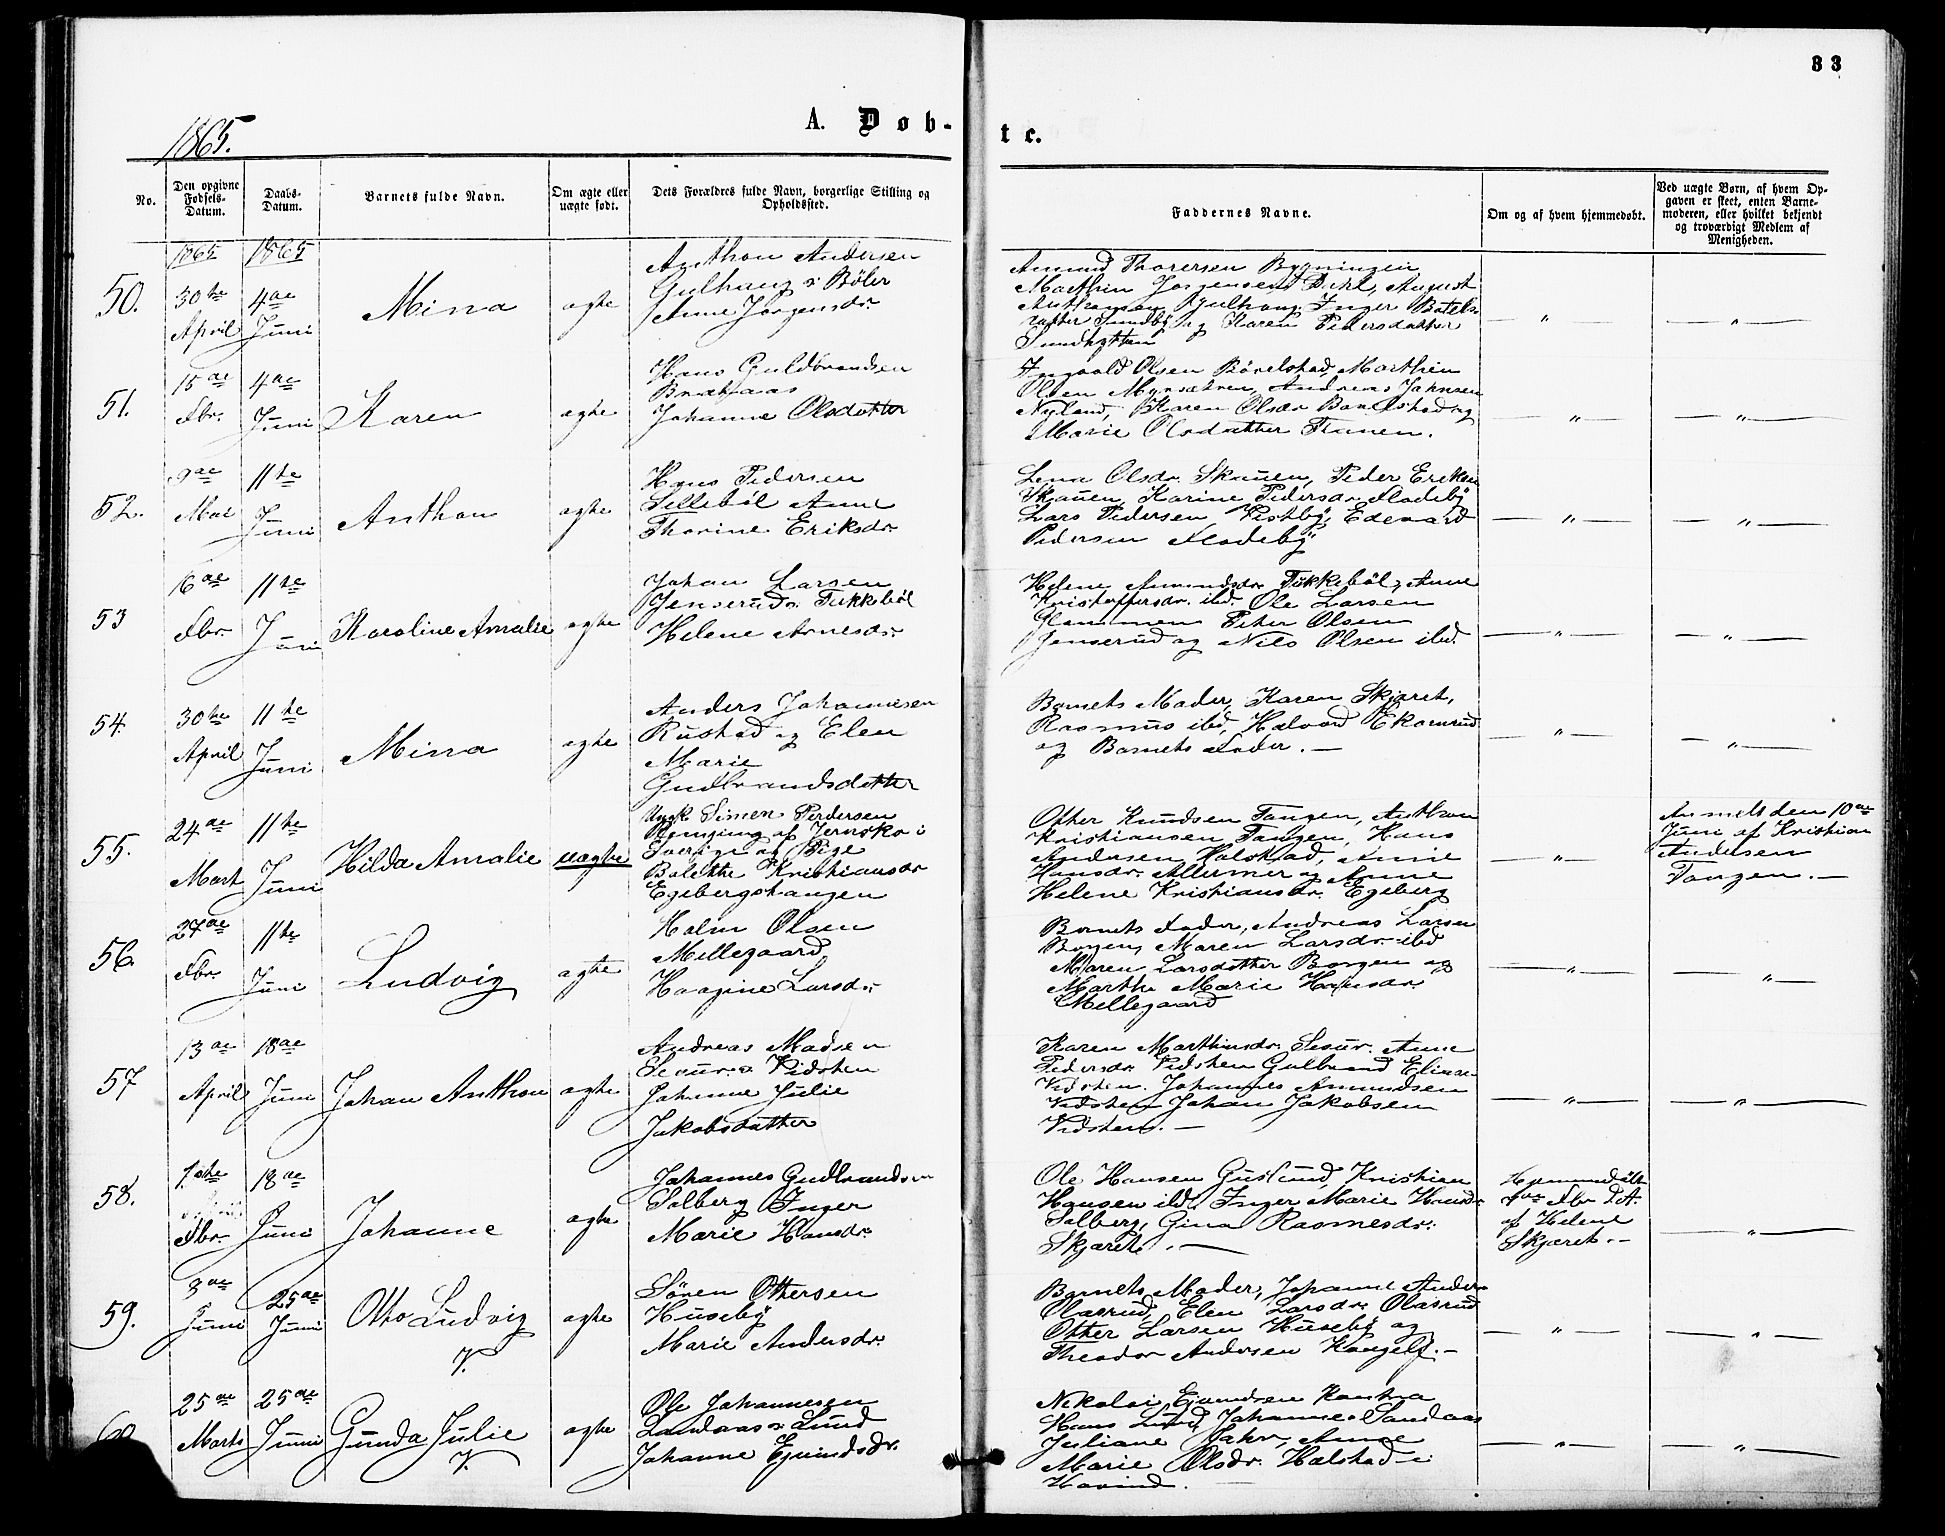 83
1865.
A. Døb-
te.
No.
Den opgivne Fødsels-Datum.
Daabs-Datum.
Barnets fulde Navn.
Om ægte eller uægte født.
Dets Forældres fulde Navn, borgerlige Stilling og Opholdssted.
Faddernes Navne.
Om og af hvem hjemmedøbt.
Ved uægte Børn, af hvem Opgaven er skeet, enten Barnemoderen, eller hvilket bekjendt og troværdigt Medlem af Menigheden.
1865
1865
50.
30te April
4de Juni
Mina
ægte
Anthon Andersen
Gulhaug v: Böler
Anne Jörgensdr.
Amund Thorersen Bygningen
Marthin Jörgensen Dahl, August
Gulhaug Inger
Sundby og Karen Pedersdatter
51.
15de Fbr.
4de Juni
Karen
ægte
Hans Guldbrandsen
Johanne Olsdatter
Ingvald Olsen Bövelstad Marthin
Olsen Andreas Johnsen
Nyland, Karen Olsdr
Marie Olsdatter
52.
9de Mai
11te Juni
Anthon
ægte
Hans Pedersen
Sillebôl Anne
Thorine Eriksdr.
Lena Olsdr. Skauen, Peder Eriksen
Skauen, Karine Pedersdr. Fladeby
Lars Pedersen Vestby, Edevard
Pedersen Fladeby
53
16de Fbr.
11te Juni
Karoline Amalie
ægte
Johan Larsen
Jenserud v. Tukkeböl
Helene Arnesdr.
Helene Amundsdr. Tukkeböl, Anne
Kristoffersdr. ibd. Ole Larsen
Glommen Peter Olsen
Jenserud og Nils Olsen ibd.
54.
30te April
11te Juni
Mina
ægte
Anders Johannesen
Rustad og Elen
Marie
Gudbrandsdatter
Barnets Moder, Karen Skjæret,
Rasmus ibd, Halvord Ekornrud
og Barnets Fader. —
55.
24de Mart
11te Juni
Hilda Amalie
uægte
Ungk. Simen Perdersen
af Jernsko i
Sverige og Pige
Bolethe Kristiansdr
Egebergshangen
Otter Knudsen Tangen, Anthon
Kristiansen Tangen, Hans
Andersen Halstad, Anne
Hansdr. og Anne
Helene Kristiansdr. Egeberg
Anmelt den 10de
Juni af Kristian
Andersen
Tangen. —
56.
27de Fbr.
11te Juni
Ludvig
ægte
Holm Olsen
Mellegaard,
Haagine Larsdr.
Barnets Fader, Andreas Larsen
Borgen, Maren Larsdr. ibd
Maren Larsdatter Borgen og
Marthe Marie Hansdr.
Mellegaard
57
13de April
18de Juni
Johan Anthon
ægte
Andreas Madsen
Vidsten
Johanne Julie
Jakobsdatter
Karen Marthinsdr. Anne
Pedersdr. Vidsten Gulbrand
Vidsten. Johannes Amundsen
Vidsten Johan Jakobsen
Vidsten. —
58.
1ste Fbr
18de Juni
Johanne
ægte
Johannes Gudbrandsen
Solberg Inger
Marie Hansdr.
Ole Hansen Kristian
Hansen ibd. Inger Marie Hansdr.
Solberg, Gina Rasmusdr.
Skjæret. —
Hjemmedöbt
Fbr
af Helene
Skjæret. —
59.
3de Juni
25de Juni
Otto Ludvig
V.
ægte
Sören Ottersen
Huseby
Marie Andersdr.
Barnets Moder, Johanne Andersdr
Olasrud, Elen Larsdr. Olasrud
Otter Larsen Huseby og
Theodor Andersen —
60
25de Marts
25de Juni
Gunda Julie
V.
ægte
Ole Johannesen
Sandaas v. Lund
Johanne Ejvindsdr.
Nikolai Ejvindsen
Hans Lund, Johanne Sandaas
Juliane Anne
Marie Olsdr. Halstad i
Hovind.